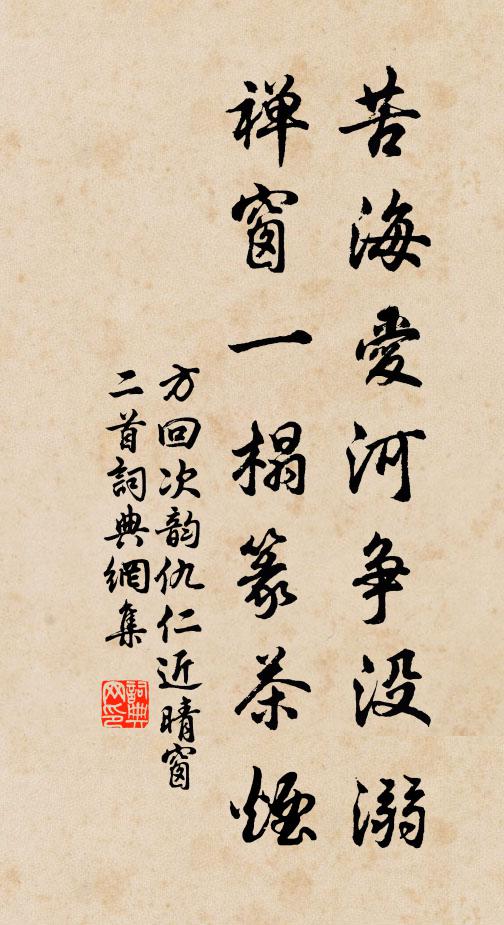 苦海愛河争没溺
禅窗一榻篆茶煙
方回次韵仇仁近晴窗
二首詞典網集
詞典网印